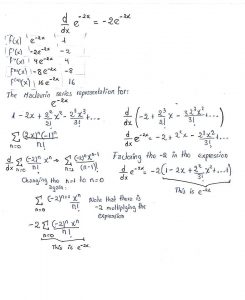 d/dx e^-2x = -2e^-2x
f(x) | e^-2x | 1
f'(x) | -2e^-2x | -2
f''(x) | 4e^-2x | 4
f'''(x) | -8e^-2x | -8
f''''(x) | 16e^-2x | 16
The Maclaurin series representation for:
e^-2x
1 - 2x + 2²x²/2! - 2³x³/3! + ...
∑ n=0 (2x)^n(-1)^n/n!
d/dx ∑ n=0 (-2)^n x^n/n! → ∑ n=1 (-2)^n x^n-1/(n-1)!
Changing the n=1 to n=0
again:
∑ n=0 (-2)^n+1 x^n/n!
Note that there is
-2 multiplying the
expression
-2 ∑ n=0 (-2)^n x^n/n!
This is e^-2x
d/dx e^-2x = -2 + 2²x -
Factoring the -2 in the expression
d/dx e^-2x = -2(1 - 2x + 2²x²/2! + ...)
This is e^-2x